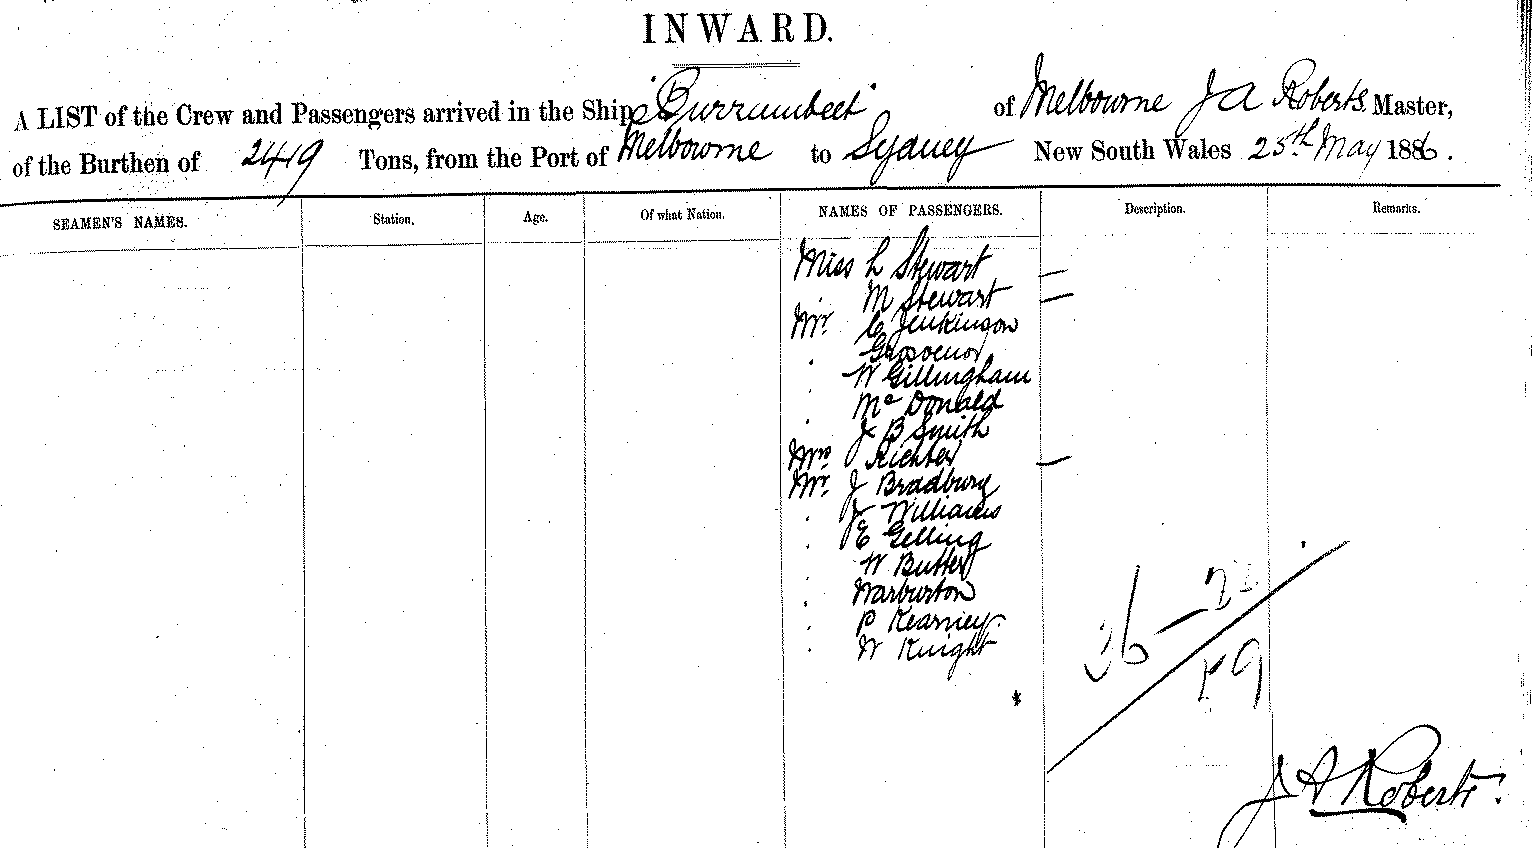 INWARD.
A LIST of the Crew and Passengers arrived in the Ship "Burrumbeet" of Melbourne J A Roberts Master,
of the Burthen of 2419 Tons, from the Port of Melbourne to Sydney New South Wales 25th May 1886.
SEAMEN'S NAMES. Station. Age. Of what Nation. NAMES OF PASSENGERS. Description. Remarks.
Miss L Stewart —
M Stewart —
Mr. C Jenkinson
. Grosvenor
. W Gillingham
. Mc Donald
. J B Smith
Mrs Richter —
Mr. J Bradbury
. J Williams
. E Gelling
. W Butler
. Warburton
. P Kearney.
. W Knight
36
J A Roberts.